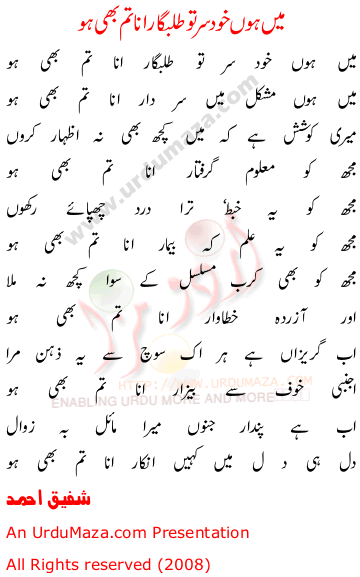 میں ہوں خود سر تو طلبگار انا تم بھی ہو
میں ہوں خود سر تو طلبگار انا تم بھی ہو
میں ہوں مشکل میں سر دار انا تم بھی ہو
میری کوشش ہے کہ میں کچھ بھی نہ اظہار کروں
مجھ کو معلوم گرفتار انا تم بھی ہو
مجھ کو یہ خبط، ترا درد چھپائے رکھوں
مجھ کو یہ علم کہ بیمار انا تم بھی ہو
مجھ کو بھی کرب مسلسل کے سوا کچھ نہ ملا
اور آزردہ خطاوار انا تم بھی ہو
اب گریزاں ہے ہر اک سوچ سے یہ ذہن مرا
اجنبی خوف سے بیزار انا تم بھی ہو
اب ہے پندار جنوں میرا مائل بہ زوال
دل ہی دل میں کہیں انکار انا تم بھی ہو
شفیق احمد
An UrduMaza.com Presentation
All Rights reserved (2008)
www.urdumaza.com
اردو مزا
HTTP://WWW.URDUMAZA.COM
ENABLING URDU MORE AND MORE